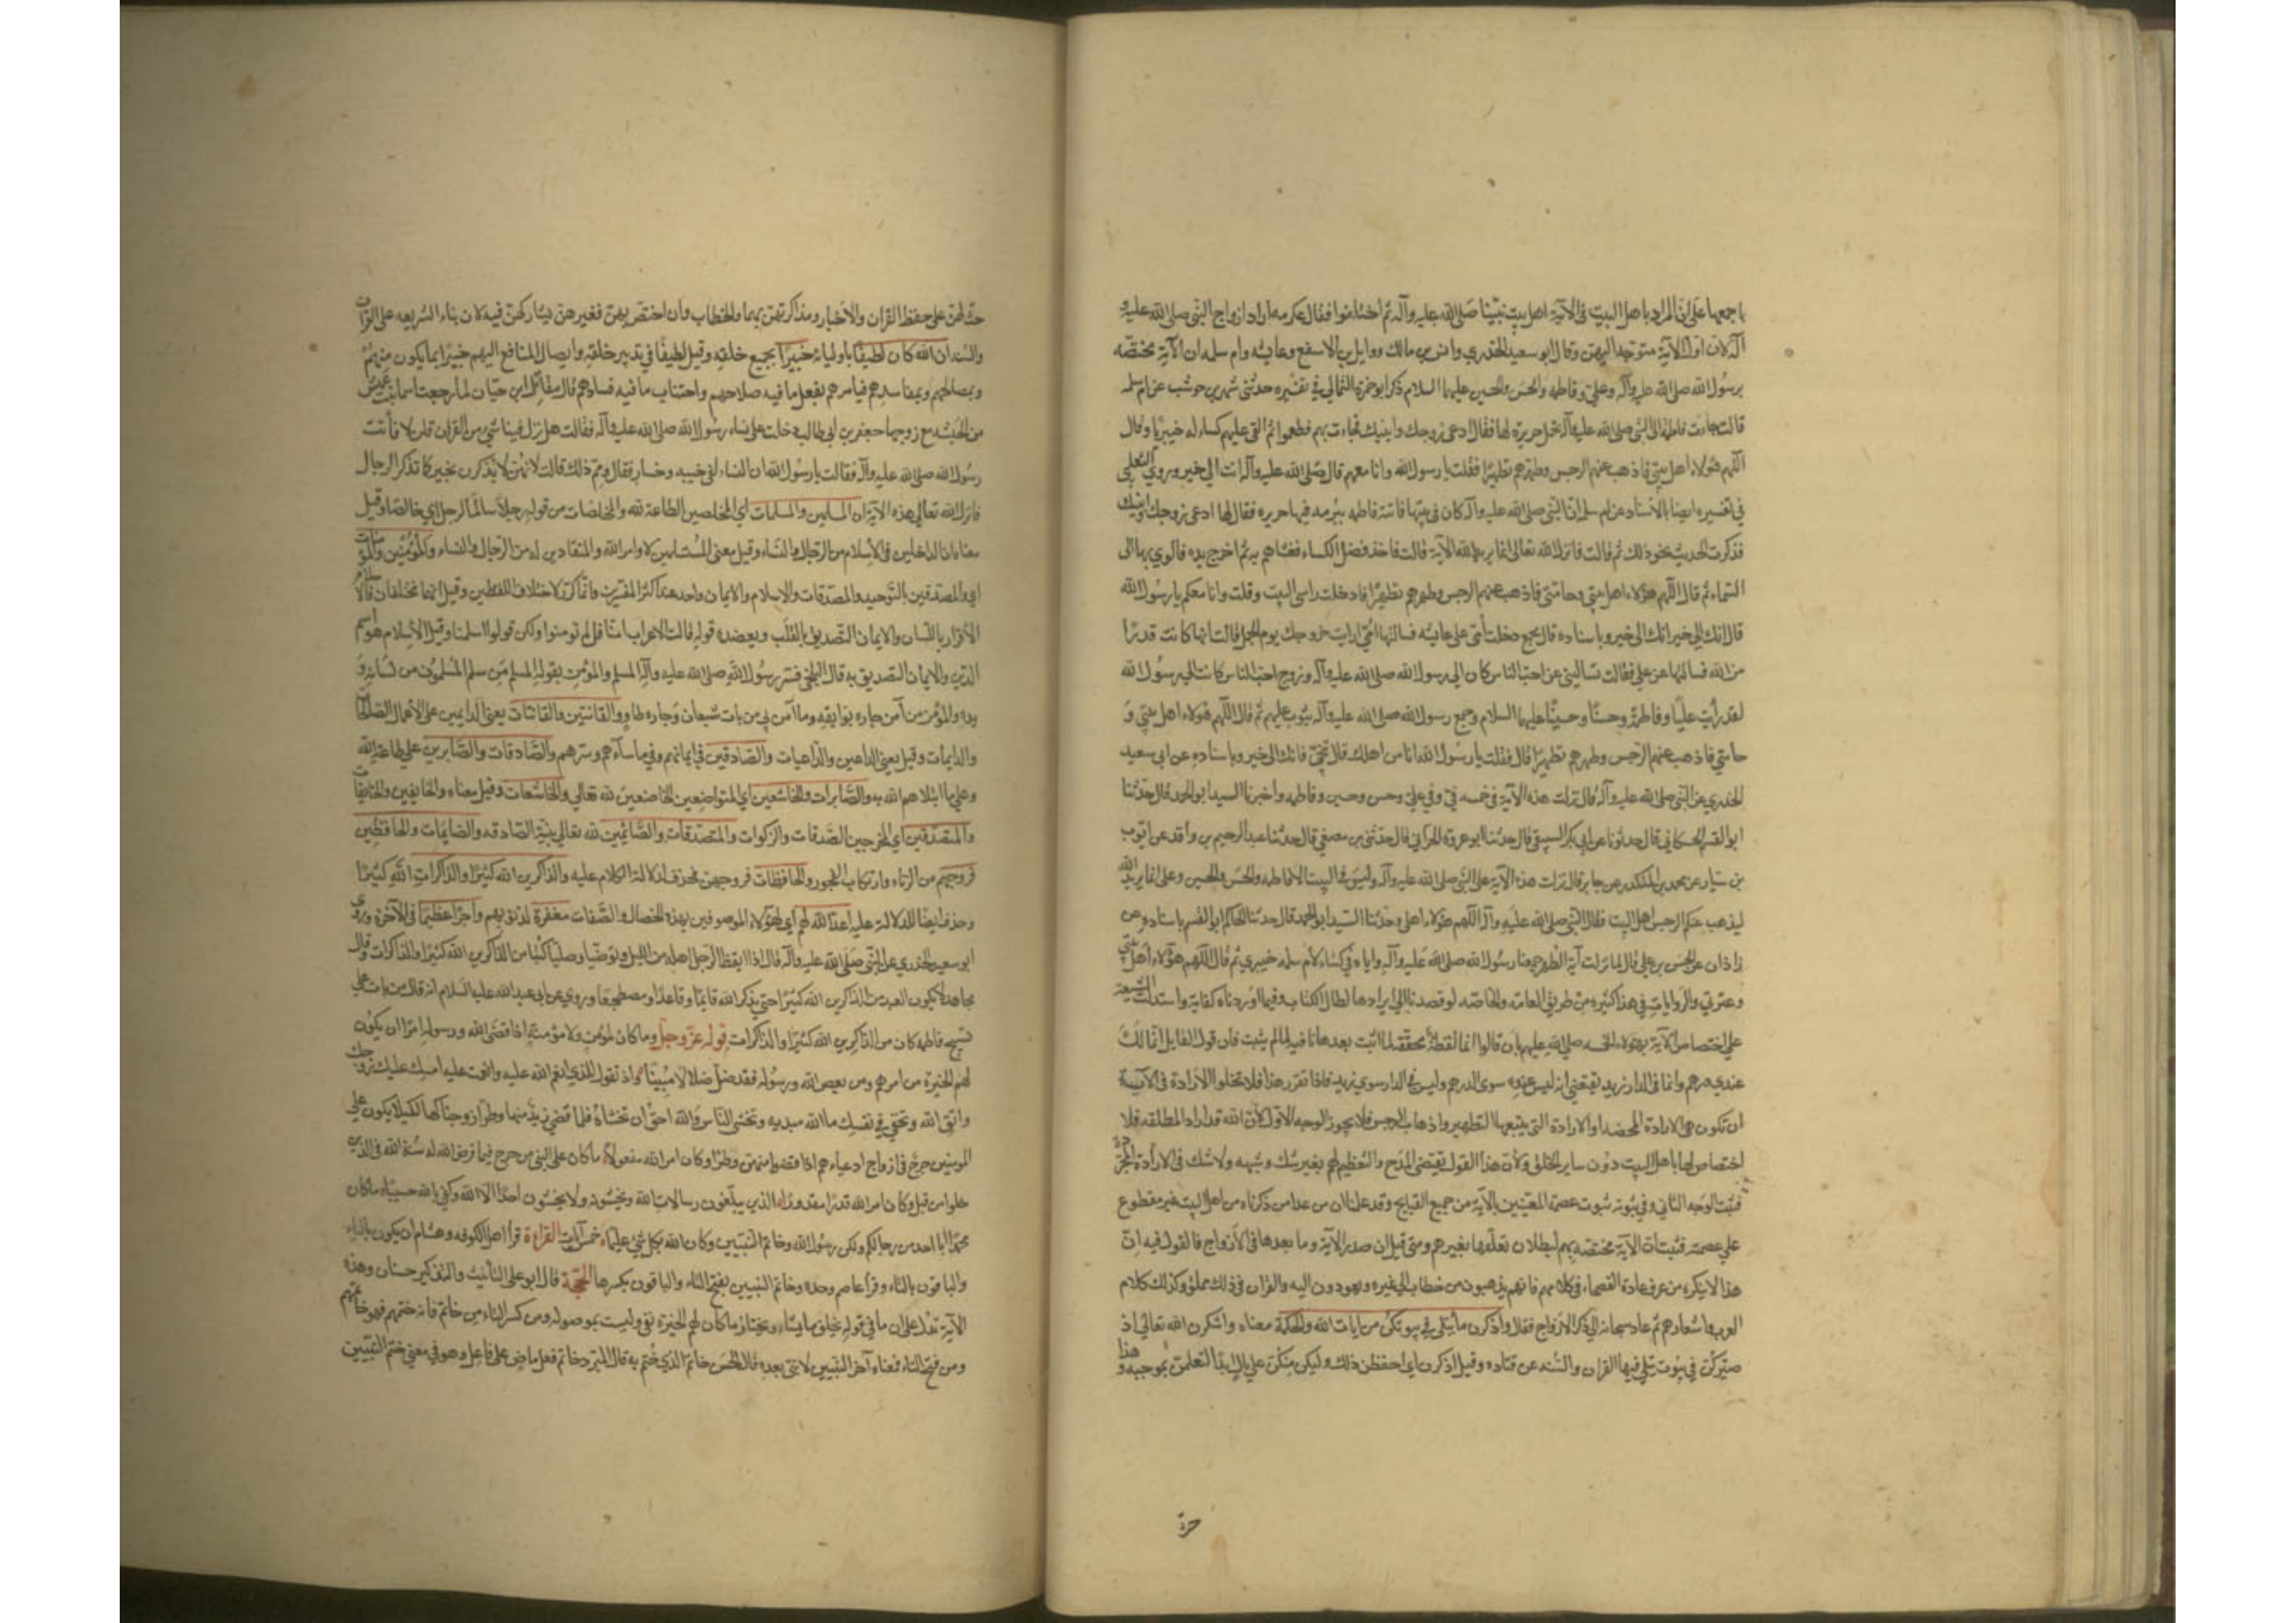 باجمعها على ان المراد باهل البيت في الآية اهل بيت نبينا صلى الله عليه وآله ثم اختلفوا فقال عكرمه اراد ازواج النبي صلى الله عليه و
آله لان اول الآية متوجه اليهن وقال ابو سعيد الخدري وانس بن مالك ووايل بن الاسقع وعايشه وام سلمه ان الآية مختصه
برسول الله صلى الله عليه وآله وعلي وفاطمه والحسن والحسين عليهما السلام ذكر ابو حمزة الثمالي في تفسيره حدثني شهر بن حوشب عن ام سلمه
قالت جاءت فاطمة الى النبي صلى الله عليه وآله تحمل حريرة لها فقال ادعى زوجك وابنيك فجاءت بهم فطعموا ثم القى عليهم كساء له خيبريا وقال
اللهم هؤلاء اهل بيتي فاذهب عنهم الرجس وطهرهم تطهيرا فقلت يا رسول الله وانا معهم قال صلى الله عليه وآله انت الي خير وروى الثعلبي
في تفسيره ايضا بالاسناد عن ام سلمه ان النبي صلى الله عليه وآله كان في بيتها فاتته فاطمه ببرمه فيها حريره فقال لها ادعى زوجك وابنيك
فذكرت الحديث نحو ذلك ثم قالت فانزل الله تعالى انما يريد الله الآية قالت فاخذ فضل الكساء فغشاهم به ثم اخرج يده فالوي بها الى
السماء ثم قال اللهم هؤلاء اهل بيتي وحامتي فاذهب عنهم الرجس وطهرهم تطهيرا فادخلت راسي البيت وقلت وانا معكم يا رسول الله
قال انك الي خير انك الى خير وباسناده قال مجمع دخلت امي على عايشه فسالتها امي ارايت خروجك يوم الجمل قالت انها كانت قدرا
من الله فسالتها عن علي فقالت تساليني عن احب الناس كان الي رسول الله صلى الله عليه وآله وزوج احب الناس كانت الي رسول الله
لقد رأيت عليا وفاطمة وحسنا وحسينا عليهما السلام وجمع رسول الله صلى الله عليه وآله بثوب عليهم ثم قال اللهم هؤلاء اهل بيتي و
حامتي فاذهب عنهم الرجس وطهرهم تطهيرا قال فقلت يا رسول الله انا من اهلك قال تنحي فانك الى خير وباسناده عن ابي سعيد
الخدري عن النبي صلى الله عليه وآله قال نزلت هذه الآية في خمسه في وفي علي وحسن وحسين وفاطمه واخبرنا السيد ابو الحمد قال حدثنا
ابو القسم الحسكاني قال حدثونا عن ابي بكر السبيعي قال حدثنا ابو عروة الحراني قال حدثني بن مصفي قال حدثنا عبد الرحيم بن واقد عن ايوب
بن سيار عن محمد بن المنكدر عن جابر قال نزلت هذه الآية على النبي صلى الله عليه وآله وليس في البيت الا فاطمه والحسن والحسين وعلى انما يريد الله
ليذهب عنكم الرجس اهل البيت فقال النبي صلى الله عليه وآله اللهم هؤلاء اهلي وحدثنا السيد ابو الحمد قال حدثنا الحاكم ابو القسم باسناده عن
زاذان عن الحسن بن علي قال لما نزلت آية التطهير جمعنا رسول الله صلى الله عليه وآله واياه في كساء لام سلمه خيبري ثم قال اللهم هؤلاء اهل بيتي
وعترتي والروايات في هذا كثيرة من طريق العامه والخاصه لو قصدنا الى ايرادها لطال الكتاب وفيما اوردناه كفاية واستدلت الشيعه
على اختصاص الآية بهؤلاء الخمسه صلى الله عليهم بان قالوا انما لفظة محققه لما اثبت بعدها نافيه لما لم يثبت فان قول القايل انما لك
عندي درهم وانما في الدار زيد يقتضي انه ليس عنده سوى الدرهم وليس في الدار سوى زيد فاذا تقرر هذا فلا تخلوا الارادة في الآية
ان تكون هي الارادة المحضه او الارادة التي يتبعها التطهير واذهاب الرجس فلا يجوز الوجه الاول لان الله قد اراد المطلقه فلا
اختصاص لها باهل البيت دون ساير الخلق ولان هذا القول يقتضي المدح والتعظيم لهم بغير شك وشبهه ولا شك في الارادة المجردة
فثبت الوجه الثاني وفي ثبوته ثبوت عصمة المعنيين بالآية من جميع القبايح وقد علمنا ان من عدا من ذكرناه من اهل البيت غير مقطوع
على عصمته فثبت ان الآية مختصه بهم لبطلان تعلقها بغيرهم ومتى قيل ان صدر الآية وما بعدها في الازواج فالقول فيه ان
هذا لا ينكره من عرف عادة الفصحاء في كلامهم فانهم يذهبون من خطاب الى غيره ويعودون اليه والقران في ذلك مملو وكذلك كلام
العرب واشعارهم ثم عاد سبحانه الي ذكر الازواج فقال واذكرن ما يتلى في بيوتكن من ايات الله والحكمة معناه واشكرن الله تعالى اذ
صيركن في بيوت يتلى فيها القران والسنه عن قتاده وقيل اذكرن اي احفظن ذلك وليكن منكن على بال ابدا لتعلمن بموجبه وهذا
حث لهن على حفظ القران والاخبار ومذاكرتهن بهما والخطاب وان اختص بهن فغيرهن يشاركهن فيه لان بناء الشريعه على القران
والسنه ان الله كان لطيفا باوليائه خبيرا بجميع خلقه وقيل لطيفا في تدبير خلقه وايصال المنافع اليهم خبيرا بما يكون منهم
وبمصالحهم وبمفاسدهم فيامرهم بفعل ما فيه صلاحهم واجتناب ما فيه فسادهم قال مقاتل بن حيان لما رجعت اسما بنت عميس
من الحبشه مع زوجها جعفر بن ابي طالب دخلت على نساء رسول الله صلى الله عليه وآله فقالت هل نزل فينا شي من القران قلن لا فأتت
رسول الله صلى الله عليه وآله فقالت يا رسول الله ان النساء لفي خيبه وخسار فقال ومم ذلك قالت لانهن لا يذكرن بخير كما تذكر الرجال
فانزل الله تعالى هذه الآية ان المسلمين والمسلمات اي المخلصين الطاعة لله والمخلصات من قوله رجلا سالما لرجل اي خالصا وقيل
معناه ان الداخلين في الاسلام من الرجال والنساء وقيل معنى المستسلمين لاوامر الله والمنقادين له من الرجال والنساء والمؤمنين والمؤمنات
اي والمصدقين بالتوحيد والمصدقات والاسلام والايمان واحد عند اكثر المفسرين وانما كرر لاختلاف اللفظين وقيل انهما مختلفان فالاسلام
الاقرار باللسان والايمان التصديق بالقلب ويعضده قوله قالت الاعراب امنا قل لم تومنوا ولكن قولوا اسلمنا وقيل الاسلام هو اسم
الدين والايمان التصديق به قال البلخي فسر رسول الله صلى الله عليه وآله المسلم والمؤمن بقوله المسلم من سلم المسلمون من لسانه و
يده والمؤمن من آمن جاره بوايقه وما آمن بي من بات شبعان وجاره طاو والقانتين والقانتات يعني الدايمين على الاعمال الصالحات
والدايمات وقيل يعني الداعين والداعيات والصادقين في ايمانهم وفي ما ساءهم وسرهم والصادقات والصابرين على طاعة الله
وعلى ما ابتلاهم الله به والصابرات والخاشعين اي المتواضعين الخاضعين لله تعالى والخاشعات وقيل معناه والخايفين والخايفات
والمتصدقين اي المخرجين الصدقات والزكوات والمتصدقات والصائمين لله تعالى بنية الصادقه والصايمات والحافظين
فروجهم من الزناء وارتكاب الفجور والحافظات فروجهن فحذف لدلالة الكلام عليه والذاكرين الله كثيرا والذاكرات الله كثيرا
وحذف ايضا للدلالة عليه اعد الله لهم اي لهؤلاء الموصوفين بهذه الخصال والصفات مغفرة لذنوبهم واجرا عظيما في الآخرة وروى
ابو سعيد الخدري عن النبي صلى الله عليه وآله قال اذا ايقظ الرجل اهله من الليل وتوضيا وصليا كتبا من الذاكرين الله كثيرا والذاكرات وقال
مجاهد لا يكون العبد من الذاكرين الله كثيرا حتى يذكر الله قايما وقاعدا ومضطجعا وروي عن ابي عبد الله عليه السلام انه قال من بات على
تسبيح فاطمه كان من الذاكرين الله كثيرا والذاكرات قوله عز وجل وما كان لمؤمن ولا مؤمنة اذا قضى الله ورسوله امرا ان يكون
لهم الخيرة من امرهم ومن يعص الله ورسوله فقد ضل ضلالا مبينا واذ تقول للذي انعم الله عليه وانعمت عليه امسك عليك زوجك
واتق الله وتخفي في نفسك ما الله مبديه وتخشى الناس والله احق ان تخشاه فلما قضي زيد منها وطرا زوجناكها لكيلا يكون على
المومنين حرج في ازواج ادعياءهم اذا قضوا منهن وطرا وكان امر الله مفعولا ما كان على النبي من حرج فيما فرض الله له سنة الله في الذين
خلوا من قبل وكان امر الله قدرا مقدورا الذين يبلغون رسالات الله ويخشونه ولا يخشون احدا الا الله وكفى بالله حسيبا ما كان
محمد ابا احد من رجالكم ولكن رسول الله وخاتم النبيين وكان الله بكل شي عليما خمس آيات القراءة قرأ اهل الكوفه وهشام ان يكون بالياء
والباقون بالتاء وقرأ عاصم وحده وخاتم النبيين بفتح التاء والباقون بكسرها الحجة قال ابو علي التأنيث والتذكير حسنان وهذه
الآية تدل على ان ما في قوله يخلق ما يشاء ويختار ما كان لهم الخيرة نفي وليست بموصوله ومن كسر التاء من خاتم فانه ختمهم فهو خاتمهم
ومن فتح التاء فمعناه آخر النبيين لا نبي بعده قال الحسن خاتم الذي ختم به قال المبرد خاتم فعل ماض على فاعل وهو في معنى ختم النبيين